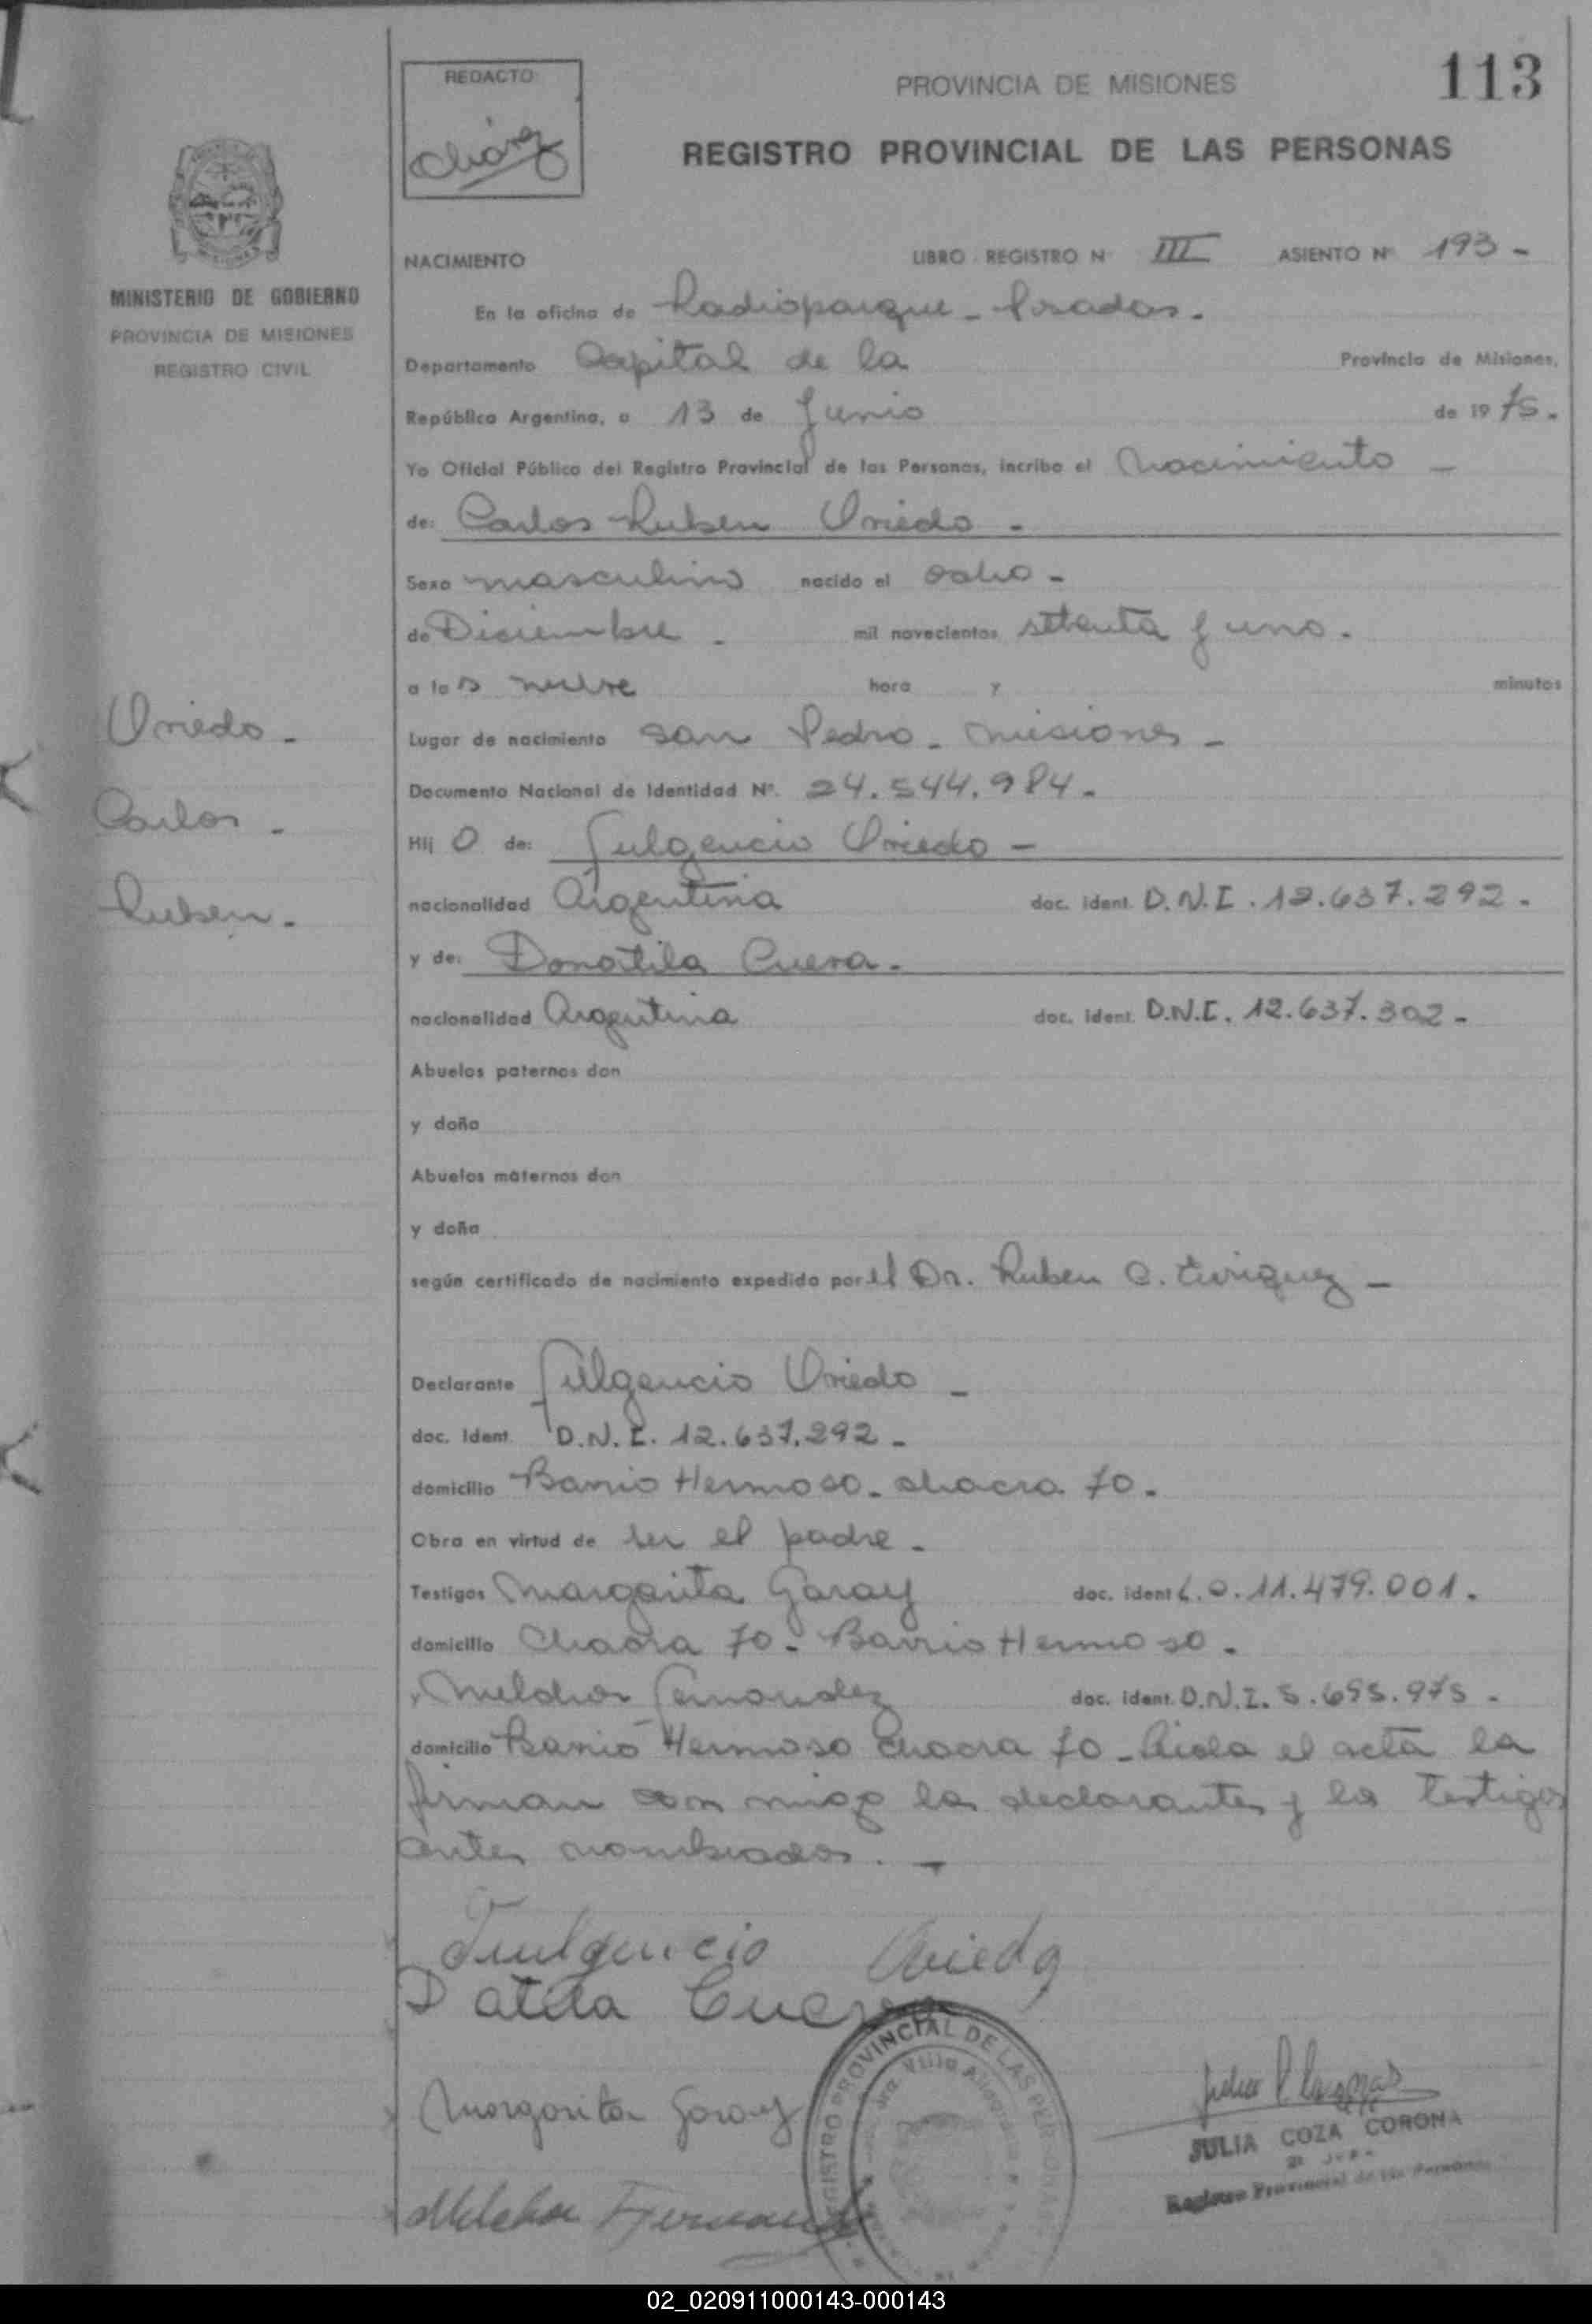 113
REDACTO
Chávez
PROVINCIA DE MISIONES
REGISTRO PROVINCIAL DE LAS PERSONAS
MINISTERIO DE GOBIERNO
PROVINCIA DE MISIONES
REGISTRO CIVIL
NACIMIENTO LIBRO REGISTRO Nº III ASIENTO Nº 193 -
En la oficina de Radioparque - Posadas.
Departamento Capital de la Provincia de Misiones,
República Argentina, a 13 de Junio de 1975.
Yo Oficial Público del Registro Provincial de las Personas, incribo el Nacimiento -
de: Carlos Ruben Oviedo -
Sexo masculino nacido el ocho -
de Diciembre - mil novecientos setenta y uno.
a las nueve hora y minutos
Lugar de nacimiento San Pedro - Misiones -
Documento Nacional de Identidad Nº. 24.544.984 -
Hij o de: Fulgencio Oviedo -
nacionalidad Argentina doc. ident. D.N.I. 12.637.292 -
y de: Donatila Cuera -
nacionalidad Argentina doc. ident. D.N.I. 12.637.302 -
Abuelos paternos don
y doña
Abuelos maternos don
y doña
según certificado de nacimiento expedido por el Dr. Ruben C. Enriquez -
Declarante Fulgencio Oviedo -
doc. Ident. D.N.I. 12.637.292 -
domicilio Barrio Hermoso - chacra 70 -
Obra en virtud de ser el padre -
Testigos Margarita Garay doc. ident L.C. 11.479.001 -
domicilio Chacra 70 - Barrio Hermoso -
y Melchor Fernandez doc. ident. D.N.I. 5.695.975 -
domicilio Barrio Hermoso Chacra 70 - Leida el acta la
firman con migo los declarantes y los testigos
antes nombrados. -
Oviedo -
Carlos -
Ruben -
Fulgencio Oviedo
D atila Cuera
Margarita Garay
Melchor Fernand
REGISTRO PROVINCIAL DE LAS PERSONAS
Villa
JULIA COZA CORONA
Registro Provincial de las Personas
02_020911000143-000143